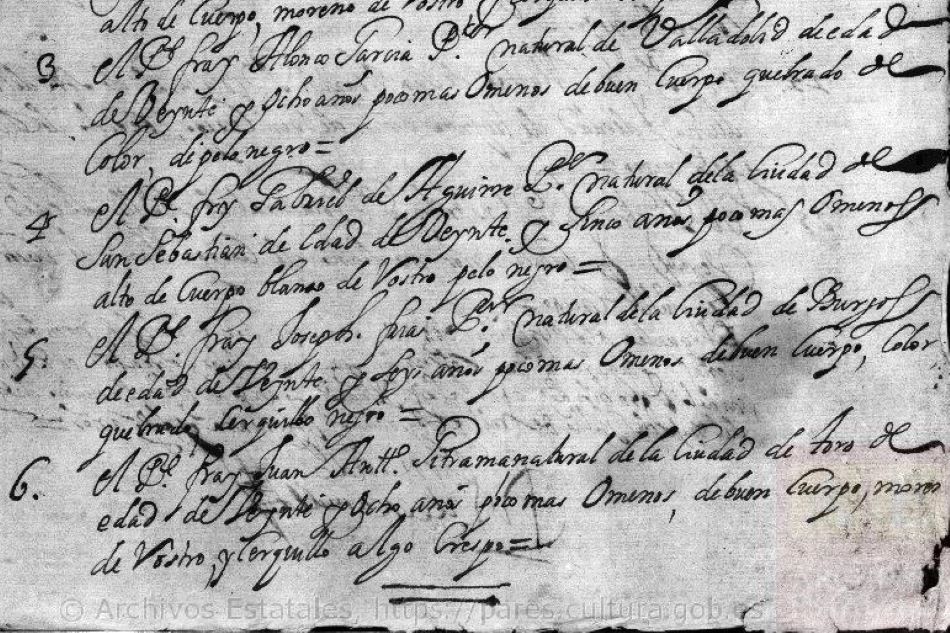 alto de Cuerpo, moreno de Rostro
3 el Pe. fray Alonso Garcia Por. natural de Valladolid de edad
de Veynte y ocho años poco mas Omenos de buen Cuerpo quebrado de
Color, de pelo negro =
4 el Pe. fray Gabriel de Aguirre Por. natural dela Ciudad de
San Sebastian de edad de Veynte y sinco años poco mas Omenos
alto de Cuerpo blanco de Rostro pelo negro =
5. el Pe. fray Joseph. Por. natural dela Ciudad de Burgos
de edad de Veynte y seys años poco mas Omenos de buen Cuerpo, Color
quebrado Cerquillo negro =
6. el Pe. fray Juan Antto. natural de la Ciudad de toro de
edad de Veynte y Ocho años poco mas Omenos, de buen Cuerpo, moreno
de Rostro, y Cerquillo algo Crespo =
© Archivos Estatales, https://pares.cultura.gob.es